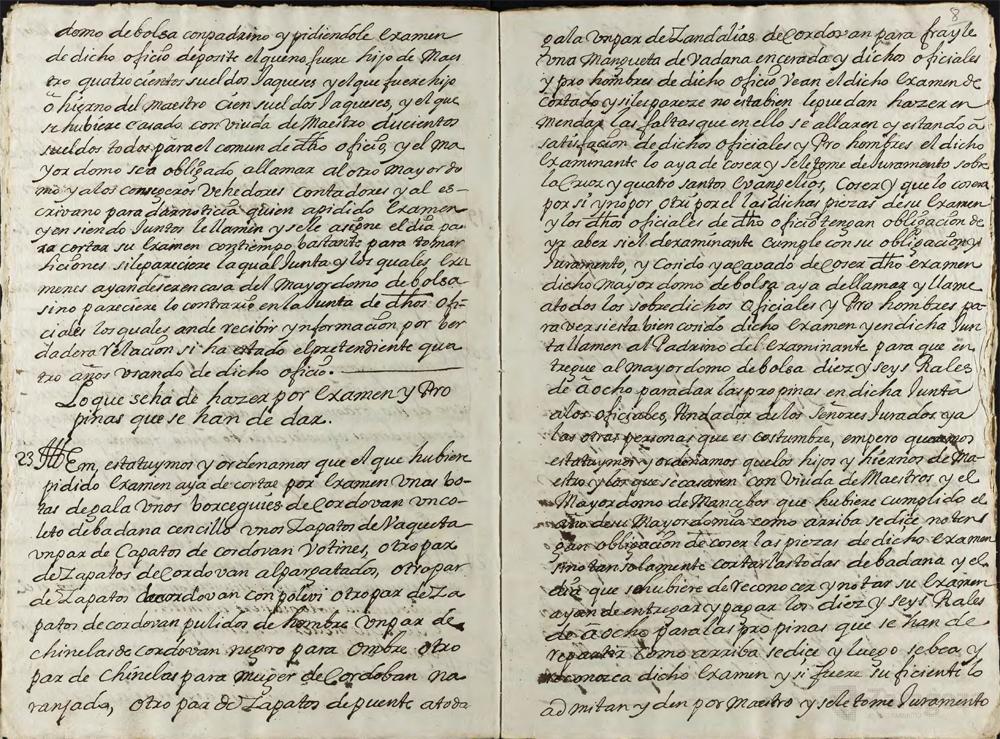 domo de bolsa con padrino y pidiendole Examen
de dicho oficio deposite el que no fuere hijo de Maes
tro quatro cientos sueldos Jaqueses y el que fuere hijo
o hierno del Maestro cien sueldos Jaqueses, y el que
se hubiere casado con viuda de Maestro ducientos
sueldos todos para el comun de dho oficio, y el Ma
yordomo sea obligado allamar al otro Mayordo
mo y a los consegeros Vehedores contadores y al es-
crivano para dar noticia quien a pidido Examen
y en siendo Juntos le llamen y sele asigne el dia pa
ra cortar su Examen con tiempo bastante para tomar
liciones si le pareciere la qual Junta y los quales Exa
menes ayan de ser en casa del Mayordomo de bolsa
sino pareciere lo contrario en la Junta de dhos ofi-
ciales los quales an de recibir ynformacion por ber
dadera relacion si ha estado el pretendiente qua
tro años usando de dicho oficio.
Lo que se ha de hazer por Examen y Pro
pinas que se han de dar.
23 Item, estatuymos y ordenamos que el que hubiere
pidido Examen aya de cortar por Examen unas bo-
tas de gala unos borceguies de Cordovan un co-
leto de badana cencillo unos Zapatos de Vaqueta
un par de Capatos de cordovan votines, otro par
de Zapatos de Cordovan alpargatados, otro par
de Zapatos de cordovan con polevi otro par de Za
patos de cordovan pulidos de hombre un par de
chinelas de Cordovan negro para ombre otro
par de Chinelas para muger de Cordoban na
ranjada, otro par de Zapatos de puente a toda
8
gala un par de Zandalias de Cordovan para frayle
una Mangueta de Vadana encerada y dichos oficiales
y pro hombres de dicho oficio vean el dicho Examen de
Cortado y si les pareze no esta bien le puedan hazer en
mendar las faltas que en ello se allaren y estando a
satisfacion de dichos oficiales y Pro hombres el dicho
Examinante lo aya de coser y Se le tome de Juramento sobre
la Cruz y quatro santos Evangelios, Coser y que lo cosera
por si y no por otri por el las dichas piezas de su Examen
y los dhos oficiales de dho oficio tengan obligacion de
yr a ber si el dexaminante cumple con su obligacion y
Juramento, y cosido y acavado de Coser dho examen
dicho mayor domo de bolsa aya de llamar y llame
a todos los sobredichos Oficiales y Pro hombres pa-
ra ver si esta bien cosido dicho Examen y en dicha Jun
ta llamen al Padrino del Examinante para que en
tregue al mayordomo de bolsa diez y seys Rales
de a ocho para dar las propinas en dicha Junta
a los oficiales, Andador de los Señores Jurados, y a
las otras personas que es costumbre, empero queremos
estatuymos y ordenamos que los hijos y hiernos de Ma-
estro y los que se casaren con viuda de Maestros y el
Mayordomo de Mancebos que hubiere cumplido el
año de su Mayordomia como arriba se dice no ten
gan obligacion de coser las piezas de dicho Examen
sino tan solamente cortarlas todas de badana y el
dia que se hubiere de reconocer y notar su Examen
ayan de entregar y pagar los diez y seys Rales
de a ocho para las propinas que se han de
repartir como arriba se dice y luego se bea y
reconozca dicho Examen y si fuere suficiente lo
admitan y den por Maestro y se le tome Juramento